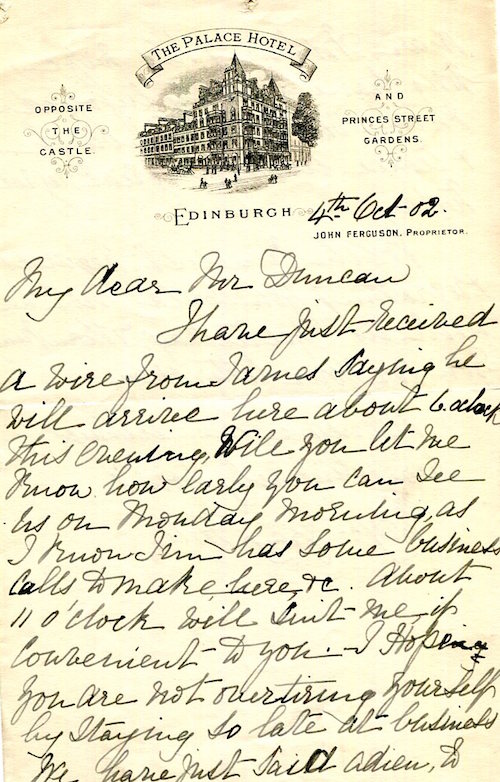 THE PALACE HOTEL
OPPOSITE
THE
CASTLE.
AND
PRINCES STREET
GARDENS.
EDINBURGH 4th Oct- 02.
JOHN FERGUSON, PROPRIETOR.
My dear Mr Duncan
I have just received
a wire from James saying he
will arrive here about 6 oclock
this evening, Will you let me
know how early you can see
us on Monday morning, as
I know Jim has some business
calls to make, here, &c. About
11 o'clock will suit me, if
convenient to you. I Hope
you are not overtiring yourself
by staying so late at business
We have just said adieu, to